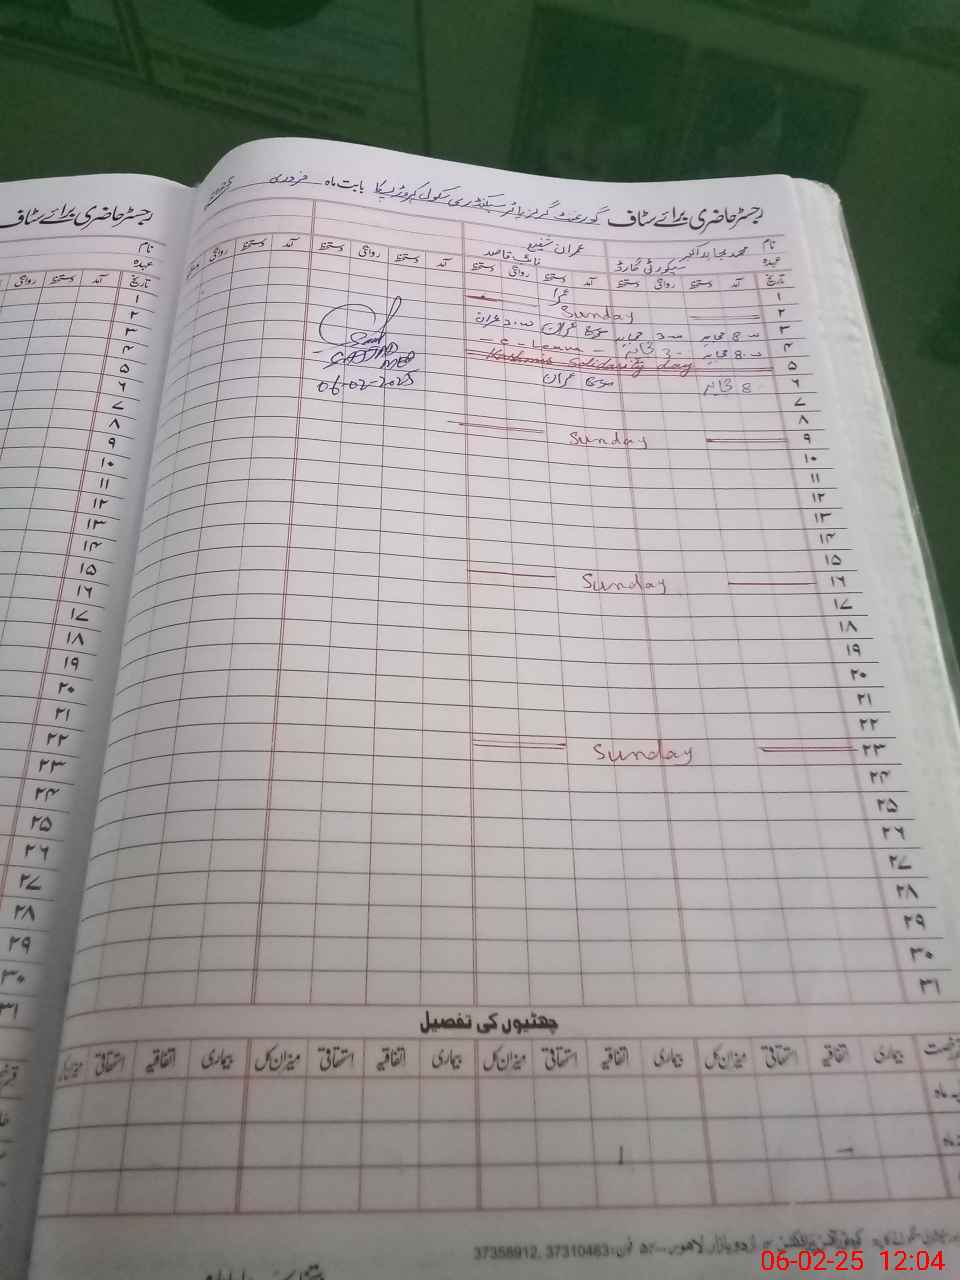 رجسٹر حاضری برائے سٹاف گورنمنٹ گرلز ہائر سیکنڈری سکول کہروڑ پکا بابت ماہ فروری
رجسٹر حاضری برائے سٹاف
نام محمد مجاہد اکبر عمران شفیع
عہدہ سیکورٹی گارڈ نائب قاصد
تاریخ آمد دستخط روانگی دستخط آمد دستخط روانگی دستخط آمد دستخط روانگی دستخط آمد دستخط روانگی
نام
عہدہ
تاریخ آمد دستخط روانگی
۱
۲ Sunday
۳
۴ - C - Leave -
۵ Kashmir Solidarity day
۶ 8
SAJJAD
MEO
06-02-2025
۷
۸
۹ Sunday
۱۰
۱۱
۱۲
۱۳
۱۴
۱۵
۱۶ Sunday
۱۷
۱۸
۱۹
۲۰
۲۱
۲۲
۲۳ Sunday
۲۴
۲۵
۲۶
۲۷
۲۸
۲۹
۳۰
۳۱
۱
۲
۳
۴
۵
۶
۷
۸
۹
۱۰
۱۱
۱۲
۱۳
۱۴
۱۵
۱۶
۱۷
۱۸
۱۹
۲۰
۲۱
۲۲
۲۳
۲۴
۲۵
۲۶
۲۷
۲۸
۲۹
۳۰
۳۱
چھٹیوں کی تفصیل
بیماری اتفاقیہ استحقاقی میزان کل بیماری اتفاقیہ استحقاقی میزان کل بیماری اتفاقیہ استحقاقی میزان کل بیماری اتفاقیہ استحقاقی
اردو بازار لاہور فون: 37310463, 37358912
06-02-25 12:04